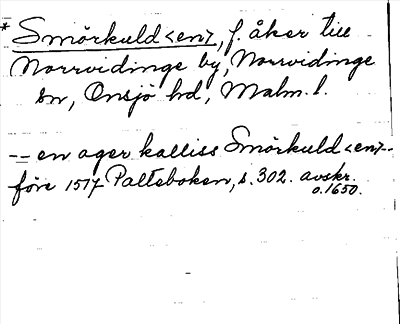 * Smörkuld <en>, f. åker till
Norrvidinge by, Norrvidinge
sn, Onsjö hd, Malm. l.
-- en ager kalliss Smörkuld <en> --
före 1517 Palteboken, s. 302. avskr.
o. 1650.